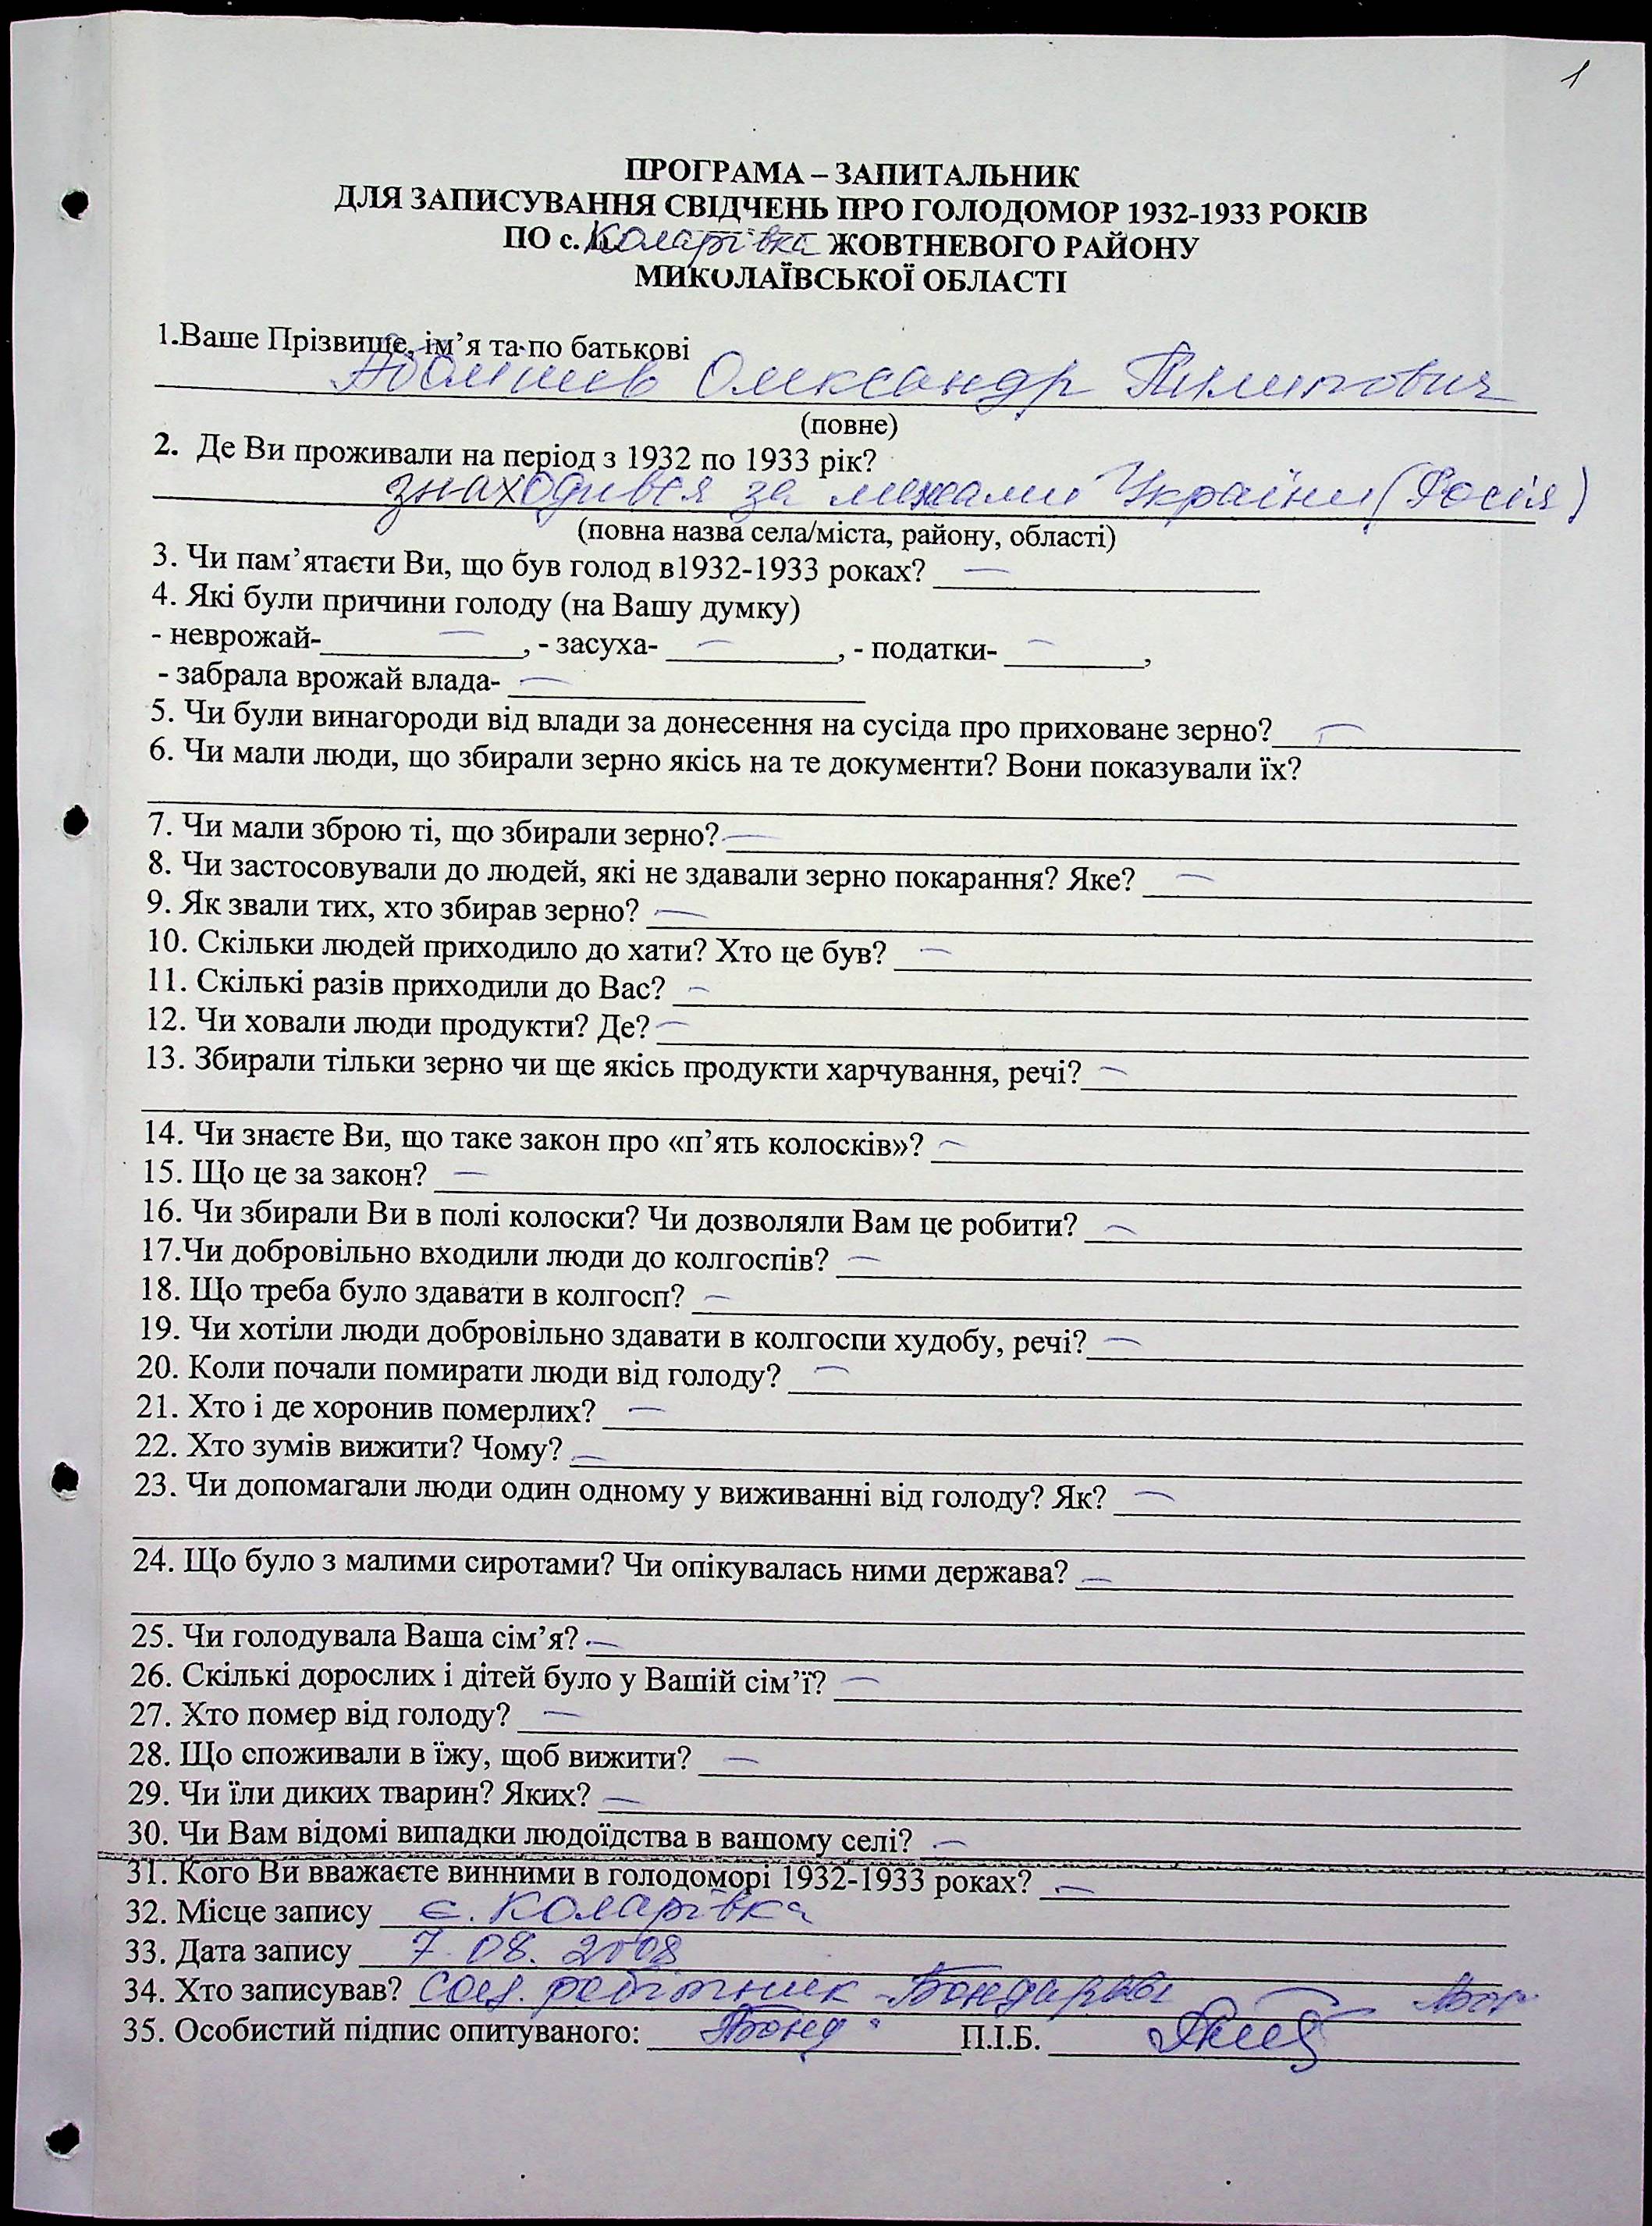 1
ПРОГРАМА – ЗАПИТАЛЬНИК
ДЛЯ ЗАПИСУВАННЯ СВІДЧЕНЬ ПРО ГОЛОДОМОР 1932-1933 РОКІВ
ПО с. Коларівка ЖОВТНЕВОГО РАЙОНУ
МИКОЛАЇВСЬКОЇ ОБЛАСТІ
1.Ваше Прізвище, ім’я та по батькові
Олександр Пилипович
(повне)
2. Де Ви проживали на період з 1932 по 1933 рік?
знаходився за межами України (Росія)
(повна назва села/міста, району, області)
3. Чи пам’ятаєти Ви, що був голод в1932-1933 роках? —
4. Які були причини голоду (на Вашу думку)
- неврожай- — , - засуха- — , - податки- — ,
- забрала врожай влада- —
5. Чи були винагороди від влади за донесення на сусіда про приховане зерно? —
6. Чи мали люди, що збирали зерно якісь на те документи? Вони показували їх?
7. Чи мали зброю ті, що збирали зерно? —
8. Чи застосовували до людей, які не здавали зерно покарання? Яке? —
9. Як звали тих, хто збирав зерно? —
10. Скільки людей приходило до хати? Хто це був? —
11. Скількі разів приходили до Вас? —
12. Чи ховали люди продукти? Де? —
13. Збирали тільки зерно чи ще якісь продукти харчування, речі? —
14. Чи знаєте Ви, що таке закон про «п’ять колосків»? —
15. Що це за закон? —
16. Чи збирали Ви в полі колоски? Чи дозволяли Вам це робити? —
17.Чи добровільно входили люди до колгоспів? —
18. Що треба було здавати в колгосп? —
19. Чи хотіли люди добровільно здавати в колгоспи худобу, речі? —
20. Коли почали помирати люди від голоду? —
21. Хто і де хоронив померлих? —
22. Хто зумів вижити? Чому? —
23. Чи допомагали люди один одному у виживанні від голоду? Як? —
24. Що було з малими сиротами? Чи опікувалась ними держава? —
25. Чи голодувала Ваша сім’я? —
26. Скількі дорослих і дітей було у Вашій сім’ї? —
27. Хто помер від голоду? —
28. Що споживали в їжу, щоб вижити? —
29. Чи їли диких тварин? Яких? —
30. Чи Вам відомі випадки людоїдства в вашому селі? —
31. Кого Ви вважаєте винними в голодоморі 1932-1933 роках? —
32. Місце запису с. Коларівка
33. Дата запису 7.08.2008
34. Хто записував? соц. робітник
35. Особистий підпис опитуваного: П.І.Б.